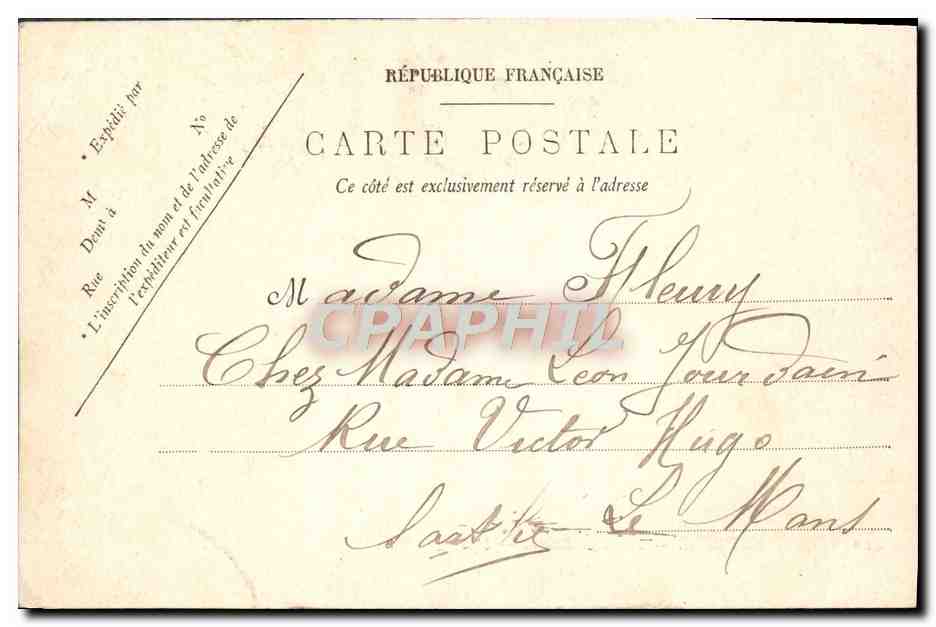 RÉPUBLIQUE FRANÇAISE
CARTE POSTALE
Ce côté est exclusivement réservé à l'adresse
• Expédié par
M
Demt à
Rue No
• L'inscription du nom et de l'adresse de
l'expéditeur est facultative
Madame Fleury
CPAPHIL
Chez Madame Leon Jourdain
Rue Victor Hugo
Le Mans